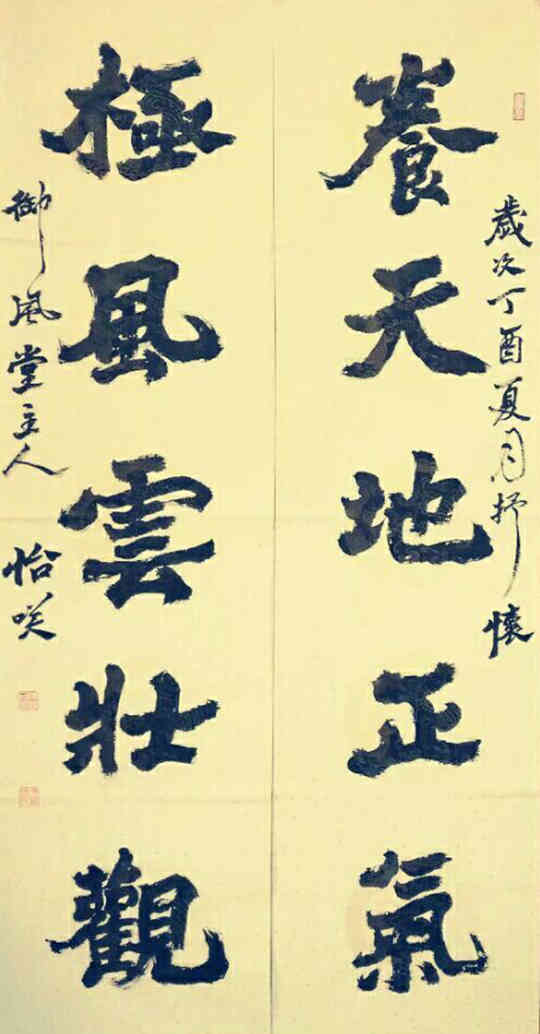 歲次丁酉夏月抒懷
養天地正氣
極風雲壯觀
御風堂主人 怡咲